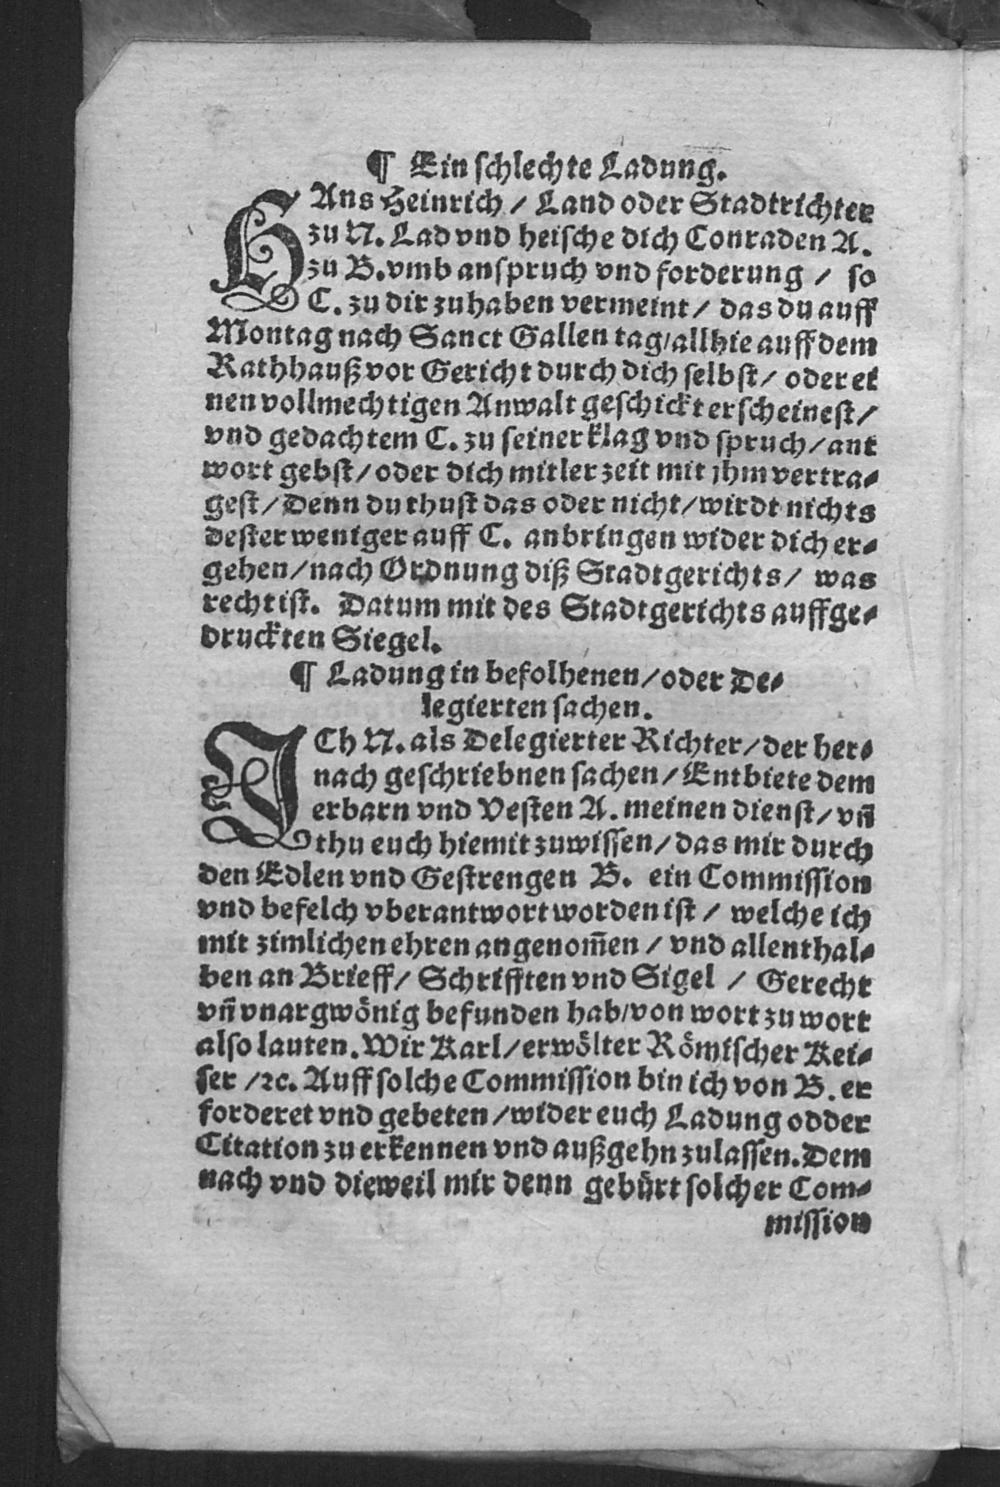 ¶ Ein schlechte Ladung.
HAns Heinrich / Land oder Stadtrichter
zu N. Lad vnd heische dich Conraden A.
zu B. vmb anspruch vnd forderung / so
C. zu dir zuhaben vermeint / das du auff
Montag nach Sanct Gallen tag / allhie auff dem
Rathhauß vor Gericht durch dich selbst / oder ei
nen vollmechtigen Anwalt geschickt erscheinest /
vnd gedachtem C. zu seiner klag vnd spruch / ant
wort gebst / oder dich mitler zeit mit jhm vertra⸗
gest / Denn du thust das oder nicht / wirdt nichts
dester weniger auff C. anbringen wider dich er⸗
gehen / nach Ordnung diß Stadtgerichts / was
recht ist. Datum mit des Stadtgerichts auffge⸗
druckten Siegel.
¶ Ladung in befolhenen / oder De⸗
legierten sachen.
ICh N. als Delegierter Richter / der her⸗
nach geschriebnen sachen / Entbiete dem
erbarn vnd Vesten A. meinen dienst / vñ
thu euch hiemit zuwissen / das mir durch
den Edlen vnd Gestrengen B. ein Commission
vnd befelch vberantwort worden ist / welche ich
mit zimlichen ehren angenom̃en / vnd allenthal⸗
ben an Brieff / Schrifften vnd Sigel / Gerecht
vñ vnargwönig befunden hab / von wort zu wort
also lauten. Wir Karl / erwölter Römischer Kei⸗
ser / ꝛc. Auff solche Commission bin ich von B. er
forderet vnd gebeten / wider euch Ladung odder
Citation zu erkennen vnd außgehn zulassen. Dem
nach vnd dieweil mir denn gebürt solcher Com⸗
mission